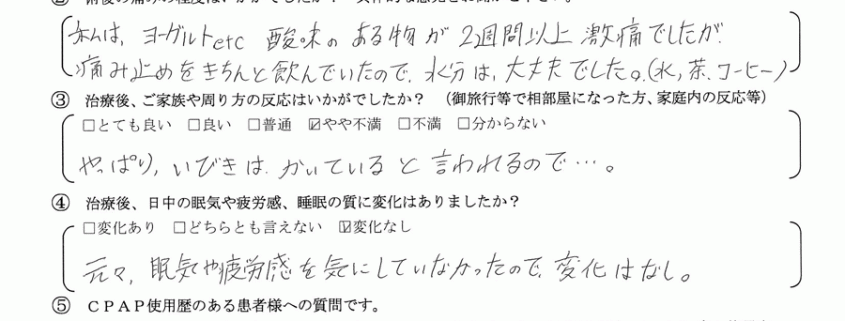 ② 術後の痛みの程度はいかがでしたか？
私は、ヨーグルトetc 酸味のある物が 2週間以上 激痛でしたが、
痛み止めをきちんと飲んでいたので、水分は、大丈夫でした。(水、茶、コーヒー)
③ 治療後、ご家族や周り方の反応はいかがでしたか？ （御旅行等で相部屋になった方、家庭内の反応等）
□とても良い □良い □普通 ☑やや不満 □不満 □分からない
やっぱり、いびきは、かいている と 言われるので…。
④ 治療後、日中の眠気や疲労感、睡眠の質に変化はありましたか？
□変化あり □どちらとも言えない ☑変化なし
元々、眠気や疲労感を気にしていなかったので、変化はなし。
⑤ ＣＰＡＰ使用歴のある患者様への質問です。